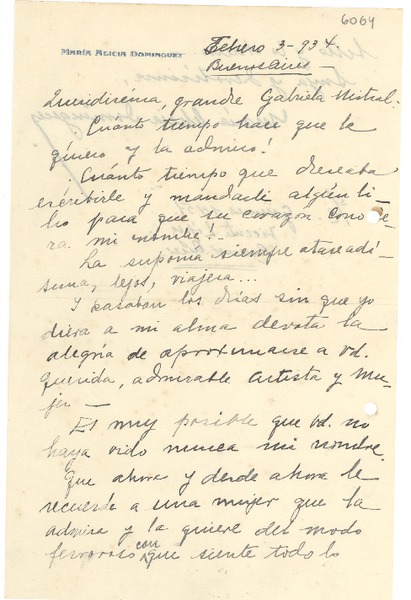 6064
MARÍA ALICIA DOMINGUEZ
Febrero 3-934
Buenos Aires
Queridísima, grande Gabriela Mistral.
Cuánto tiempo hace que la
quiero y la admiro!
Cuánto tiempo que deseaba
escribirle y mandarle algún li-
bro para que su corazón conocie-
ra mi nombre!
La suponía siempre atareadí-
sima, lejos, viajera...
Y pasaban los días sin que yo
diera a mi alma devota la
alegría de aproximarse a Vd.
querida, admirable artista y mu-
jer —
Es muy posible que Vd. no
haya oído nunca mi nombre.
Que ahora y desde ahora le
recuerde a una mujer que la
admira y la quiere del modo
fervoroso con que siente todo lo